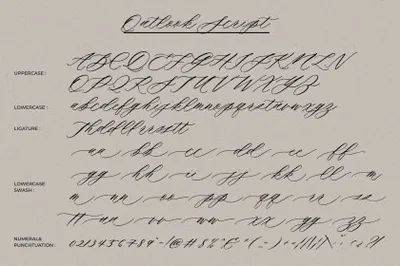 Outlook Script
UPPERCASE : ABCDEFGHIJKLMN
OPQRSTUVWXYZ
LOWERCASE : abcdefghijklmnopqrstuvwxyz
LIGATURE :
aa bb cc dd ee ff
LOWERCASE SWASH : gg hh ii jj kk ll m
m nn oo pp qq rr ss
tt uu vv ww xx yy zz
NUMERAL & PUNCTUATION : 0123456789